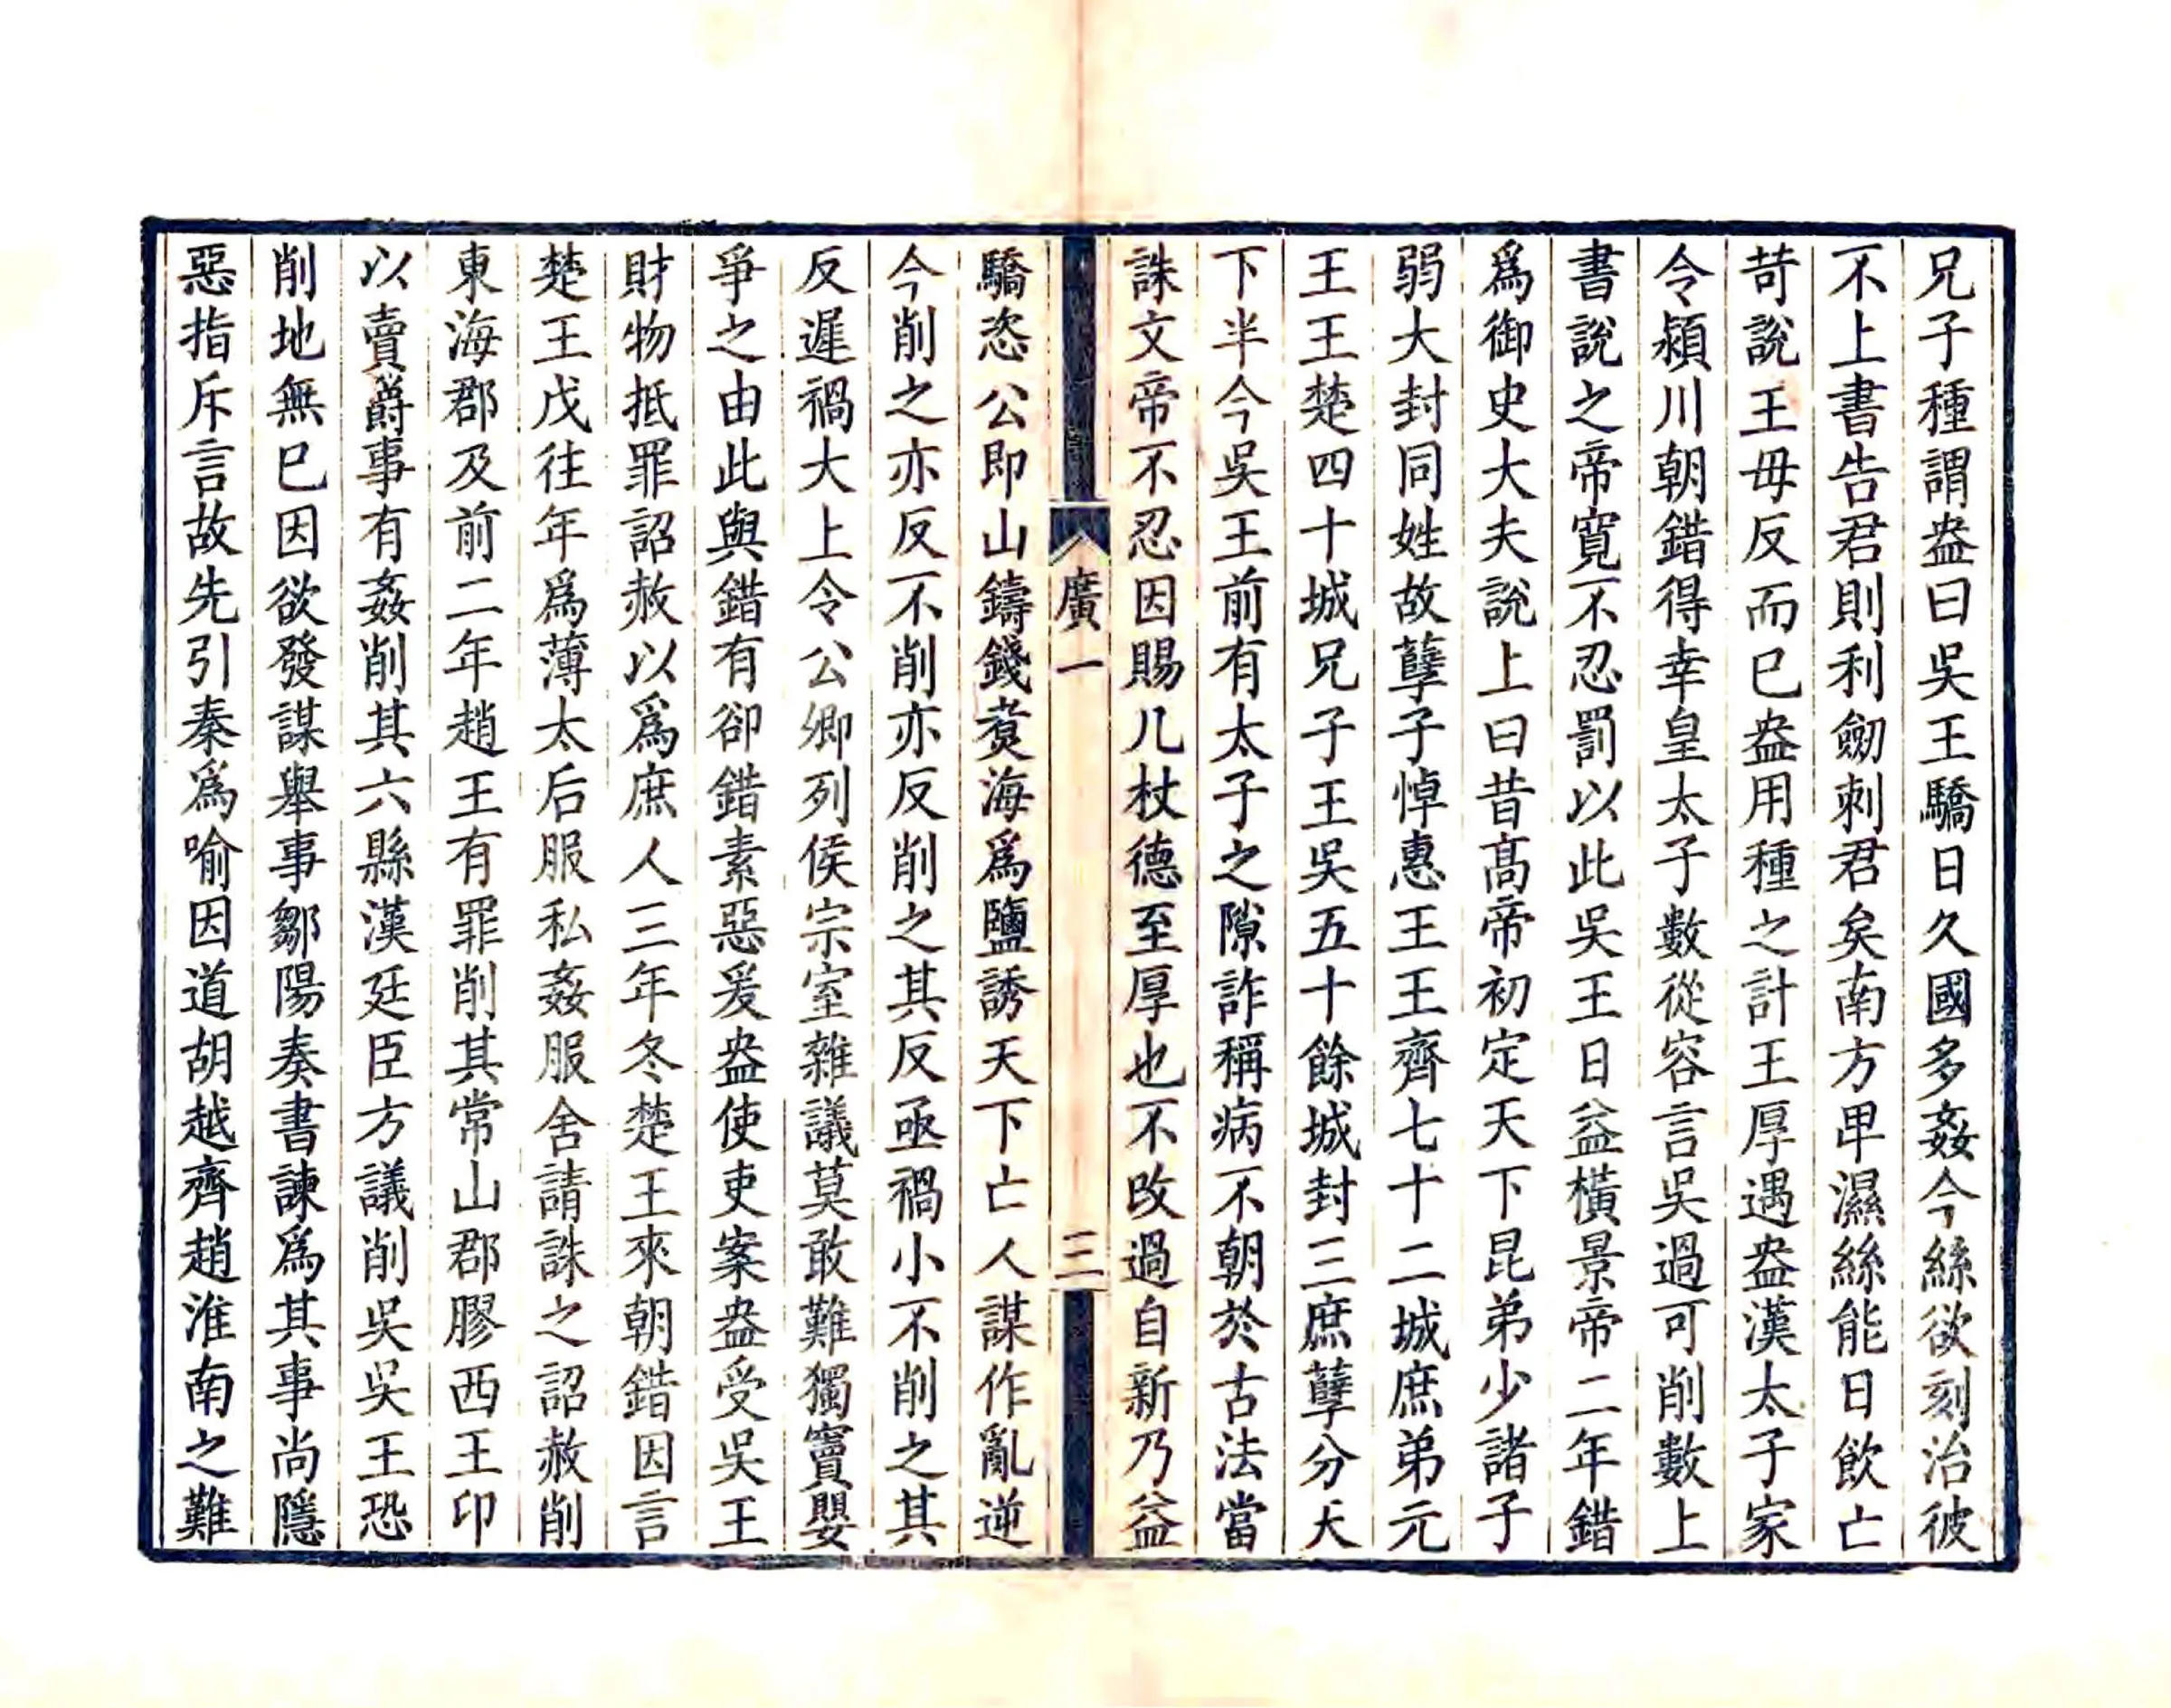 兄子種謂盎曰吳王驕日久國多姦今絲欲刻治彼
不上書告君則利劒刺君矣南方卑濕絲能日飲亡
苛說王毋反而已盎用種之計王厚遇盎漢太子家
令潁川朝錯得幸皇太子數從容言吳過可削數上
書說之帝寬不忍罰以此吳王日益橫景帝二年錯
爲御史大夫說上曰昔髙帝初定天下昆弟少諸子
弱大封同姓故孽子悼惠王王齊七十二城庶弟元
王王楚四十城兄子王吳五十餘城封三庶孽分天
下半今吳王前有太子之隙詐稱病不朝於古法當
誅文帝不忍因賜几杖德至厚也不改過自新乃益
廣一
三
驕恣公即山鑄錢煑海爲鹽誘天下亡人謀作亂逆
今削之亦反不削亦反削之其反亟禍小不削之其
反遲禍大上令公卿列侯宗室雜議莫敢難獨竇嬰
爭之由此與錯有卻錯素惡爰盎使吏案盎受吳王
財物抵罪詔赦以爲庶人三年冬楚王來朝錯因言
楚王戊往年爲薄太后服私姦服舍請誅之詔赦削
東海郡及前二年趙王有罪削其常山郡膠西王卬
以賣爵事有姦削其六縣漢廷臣方議削吳吳王恐
削地無已因欲發謀舉事鄒陽奏書諫爲其事尚隱
惡指斥言故先引秦爲喻因道胡越齊趙淮南之難